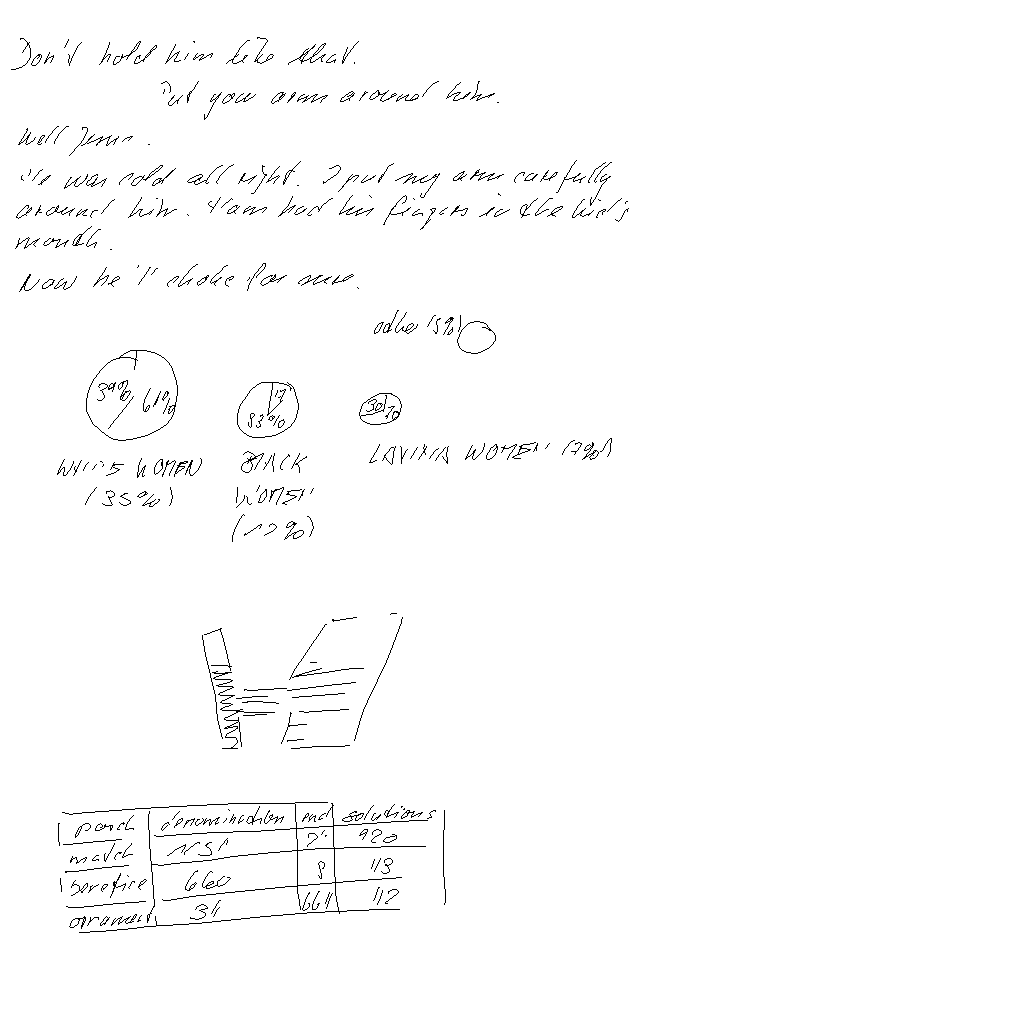 Don't hold him like that.
Put your arm around him.
Well Jesus.
He was cold all right. I put my arm carefully
around him. Ham had his fingers in the kid's
mouth.
Now he'll choke for sure.
other (5%)
39% 61%
17
83%
30 70
WHITE WOMEN
(35%)
BLACK
WOMEN
(12%)
LATINA WOMEN (7%)
porch denomination end solutions
match 920
660 8 113
34 664 112